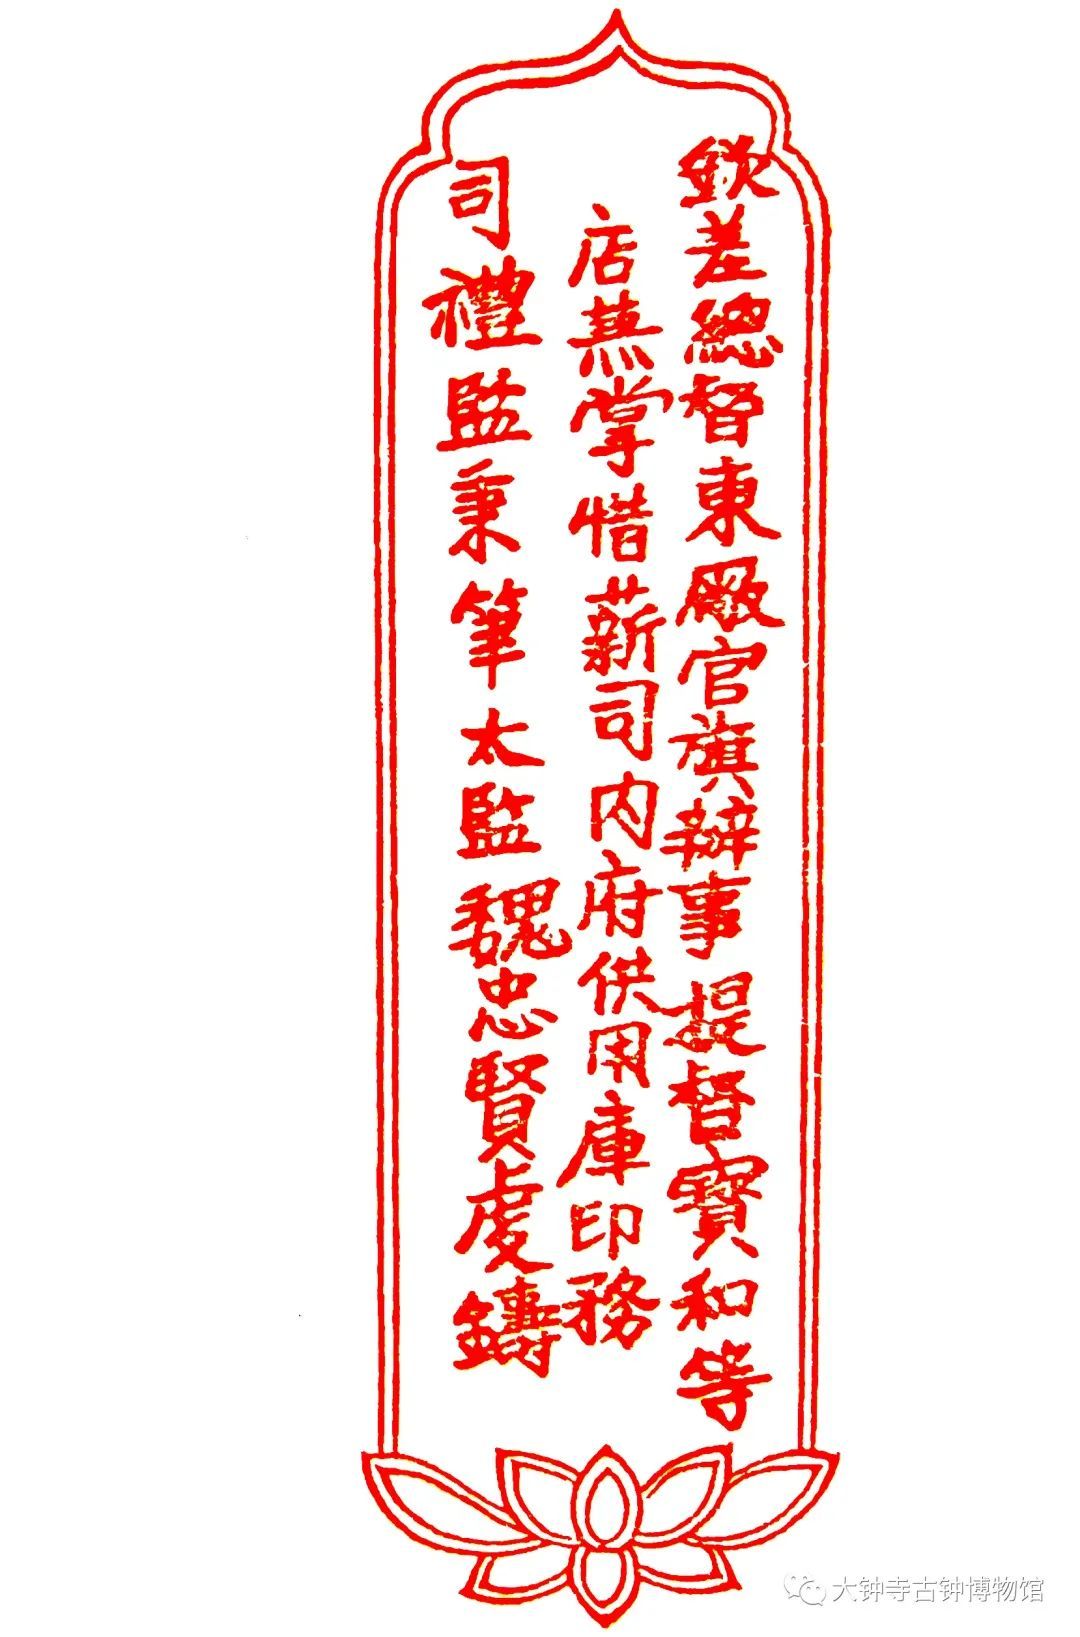 欽差總督東厰官旗辦事提督寳和等
店兼掌惜薪司内府供用庫印務
司禮監秉筆太監魏忠賢處鑄
大钟寺古钟博物馆